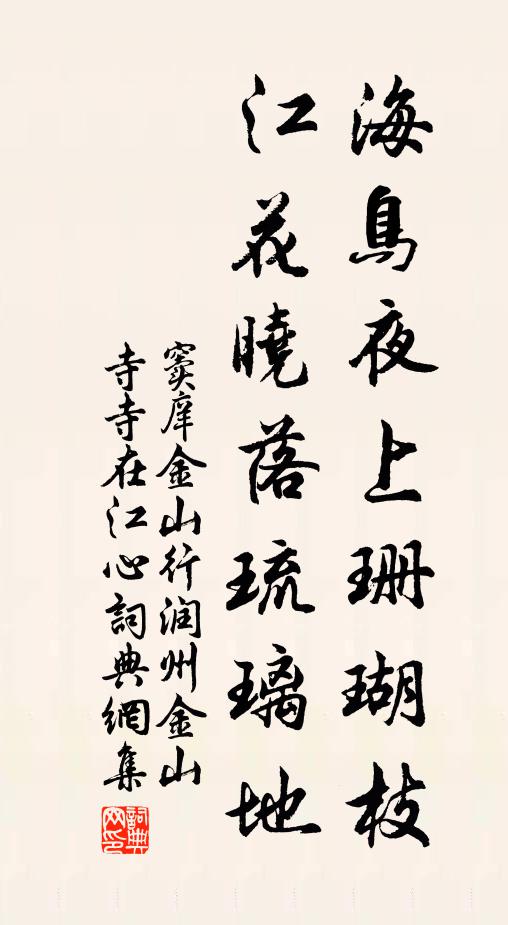 海鳥夜上珊瑚枝
江花曉落琉璃地
竇庠金山行润州金山
寺寺在江心詞典網集
詞典网印